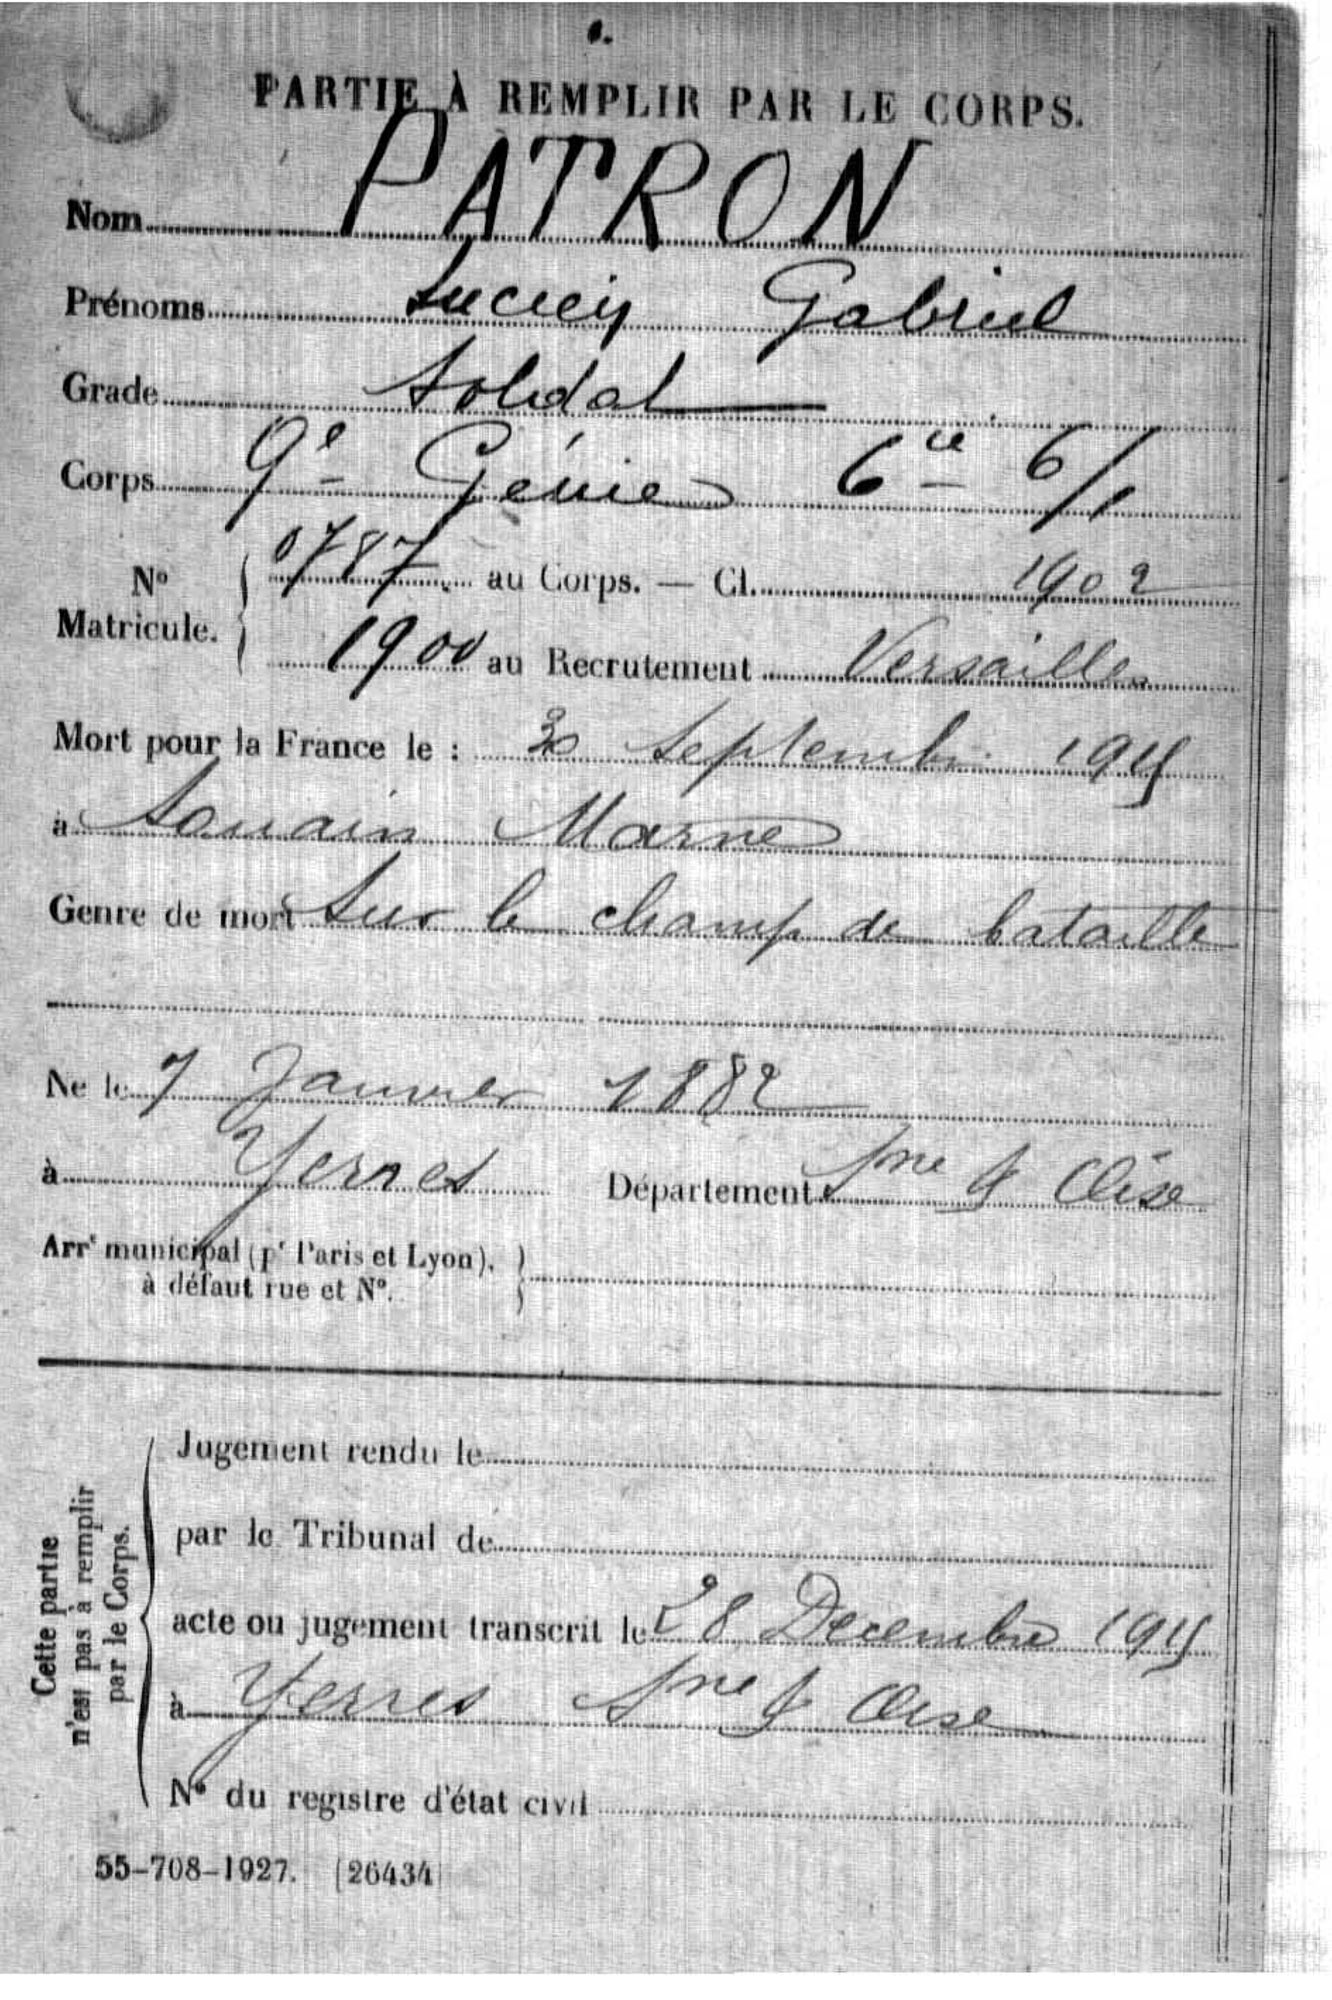 PARTIE À REMPLIR PAR LE CORPS.
Nom PATRON
Prénoms Lucien Gabriel
Grade Soldat
Corps 9e Génie 6 Cie 6/1
No Matricule. 0787 au Corps. — Cl. 1902
1900 au Recrutement Versailles
Mort pour la France le : 30 Septembre 1915
à Souain Marne
Genre de mort Sur le champ de bataille
Né le 7 Janvier 1882
à Yerres Département Sne & Oise
Arrt municipal (pr Paris et Lyon),
à défaut rue et No.
Cette partie
n'est pas à remplir
par le Corps.
Jugement rendu le
par le Tribunal de
acte ou jugement transcrit le 28 Decembre 1915
à Yerres Sne & Oise
No du registre d'état civil
55-708-1927. [26434]